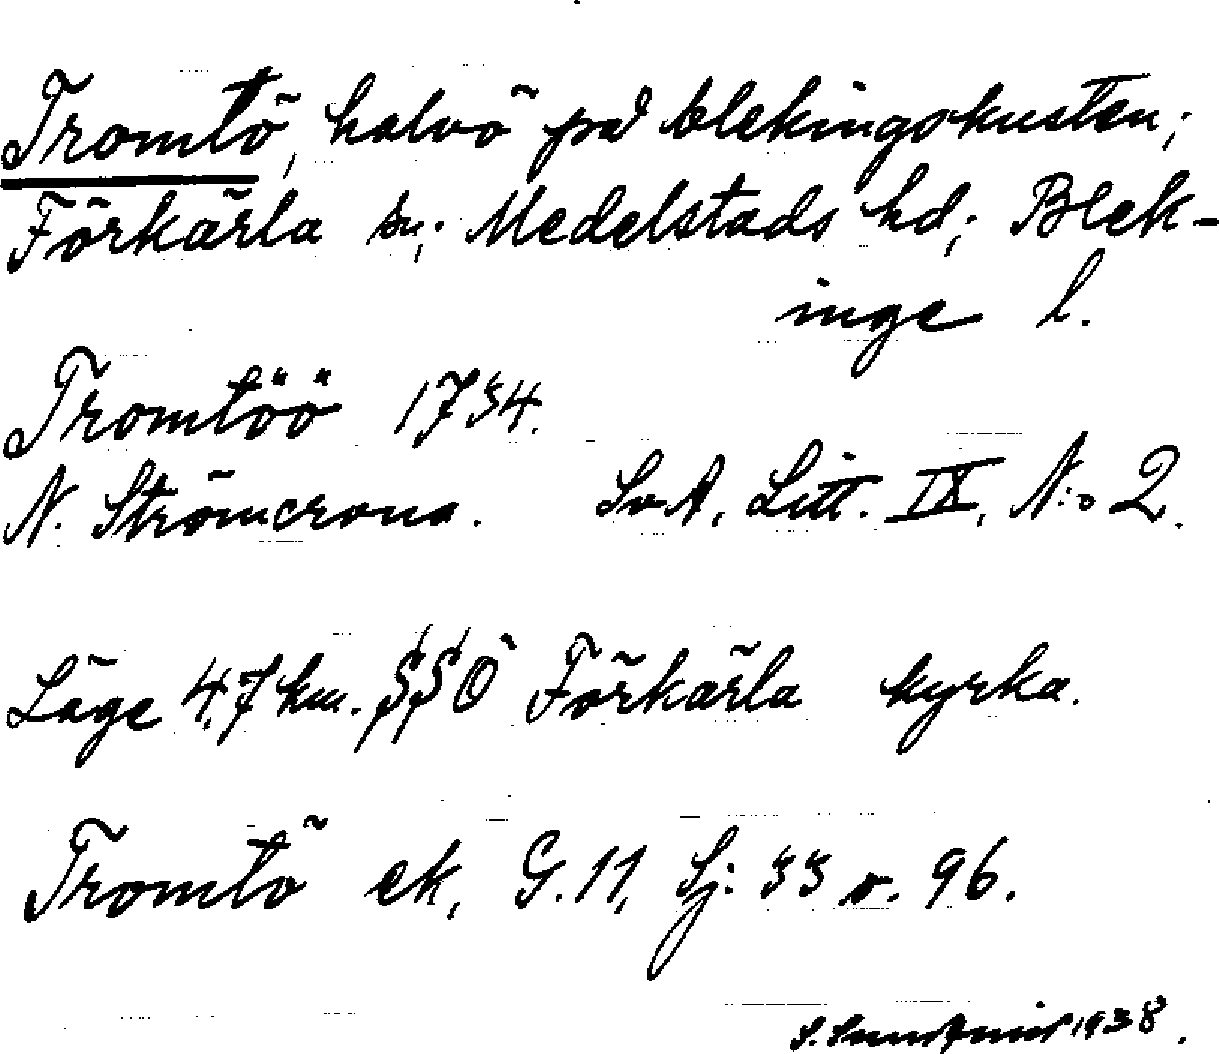 Tromtö, halvö på blekingekusten;
Förkärla sn; Medelstads hd; Blek-
inge l.
Tromtöö 1734.
N. Strömcrona. SvA, Litt. IX, N:o 2.
Läge 4,7 km. SSÖ Förkärla kyrka.
Tromtö ek, G.11, Sj: 33 o. 96.
S. 1938.